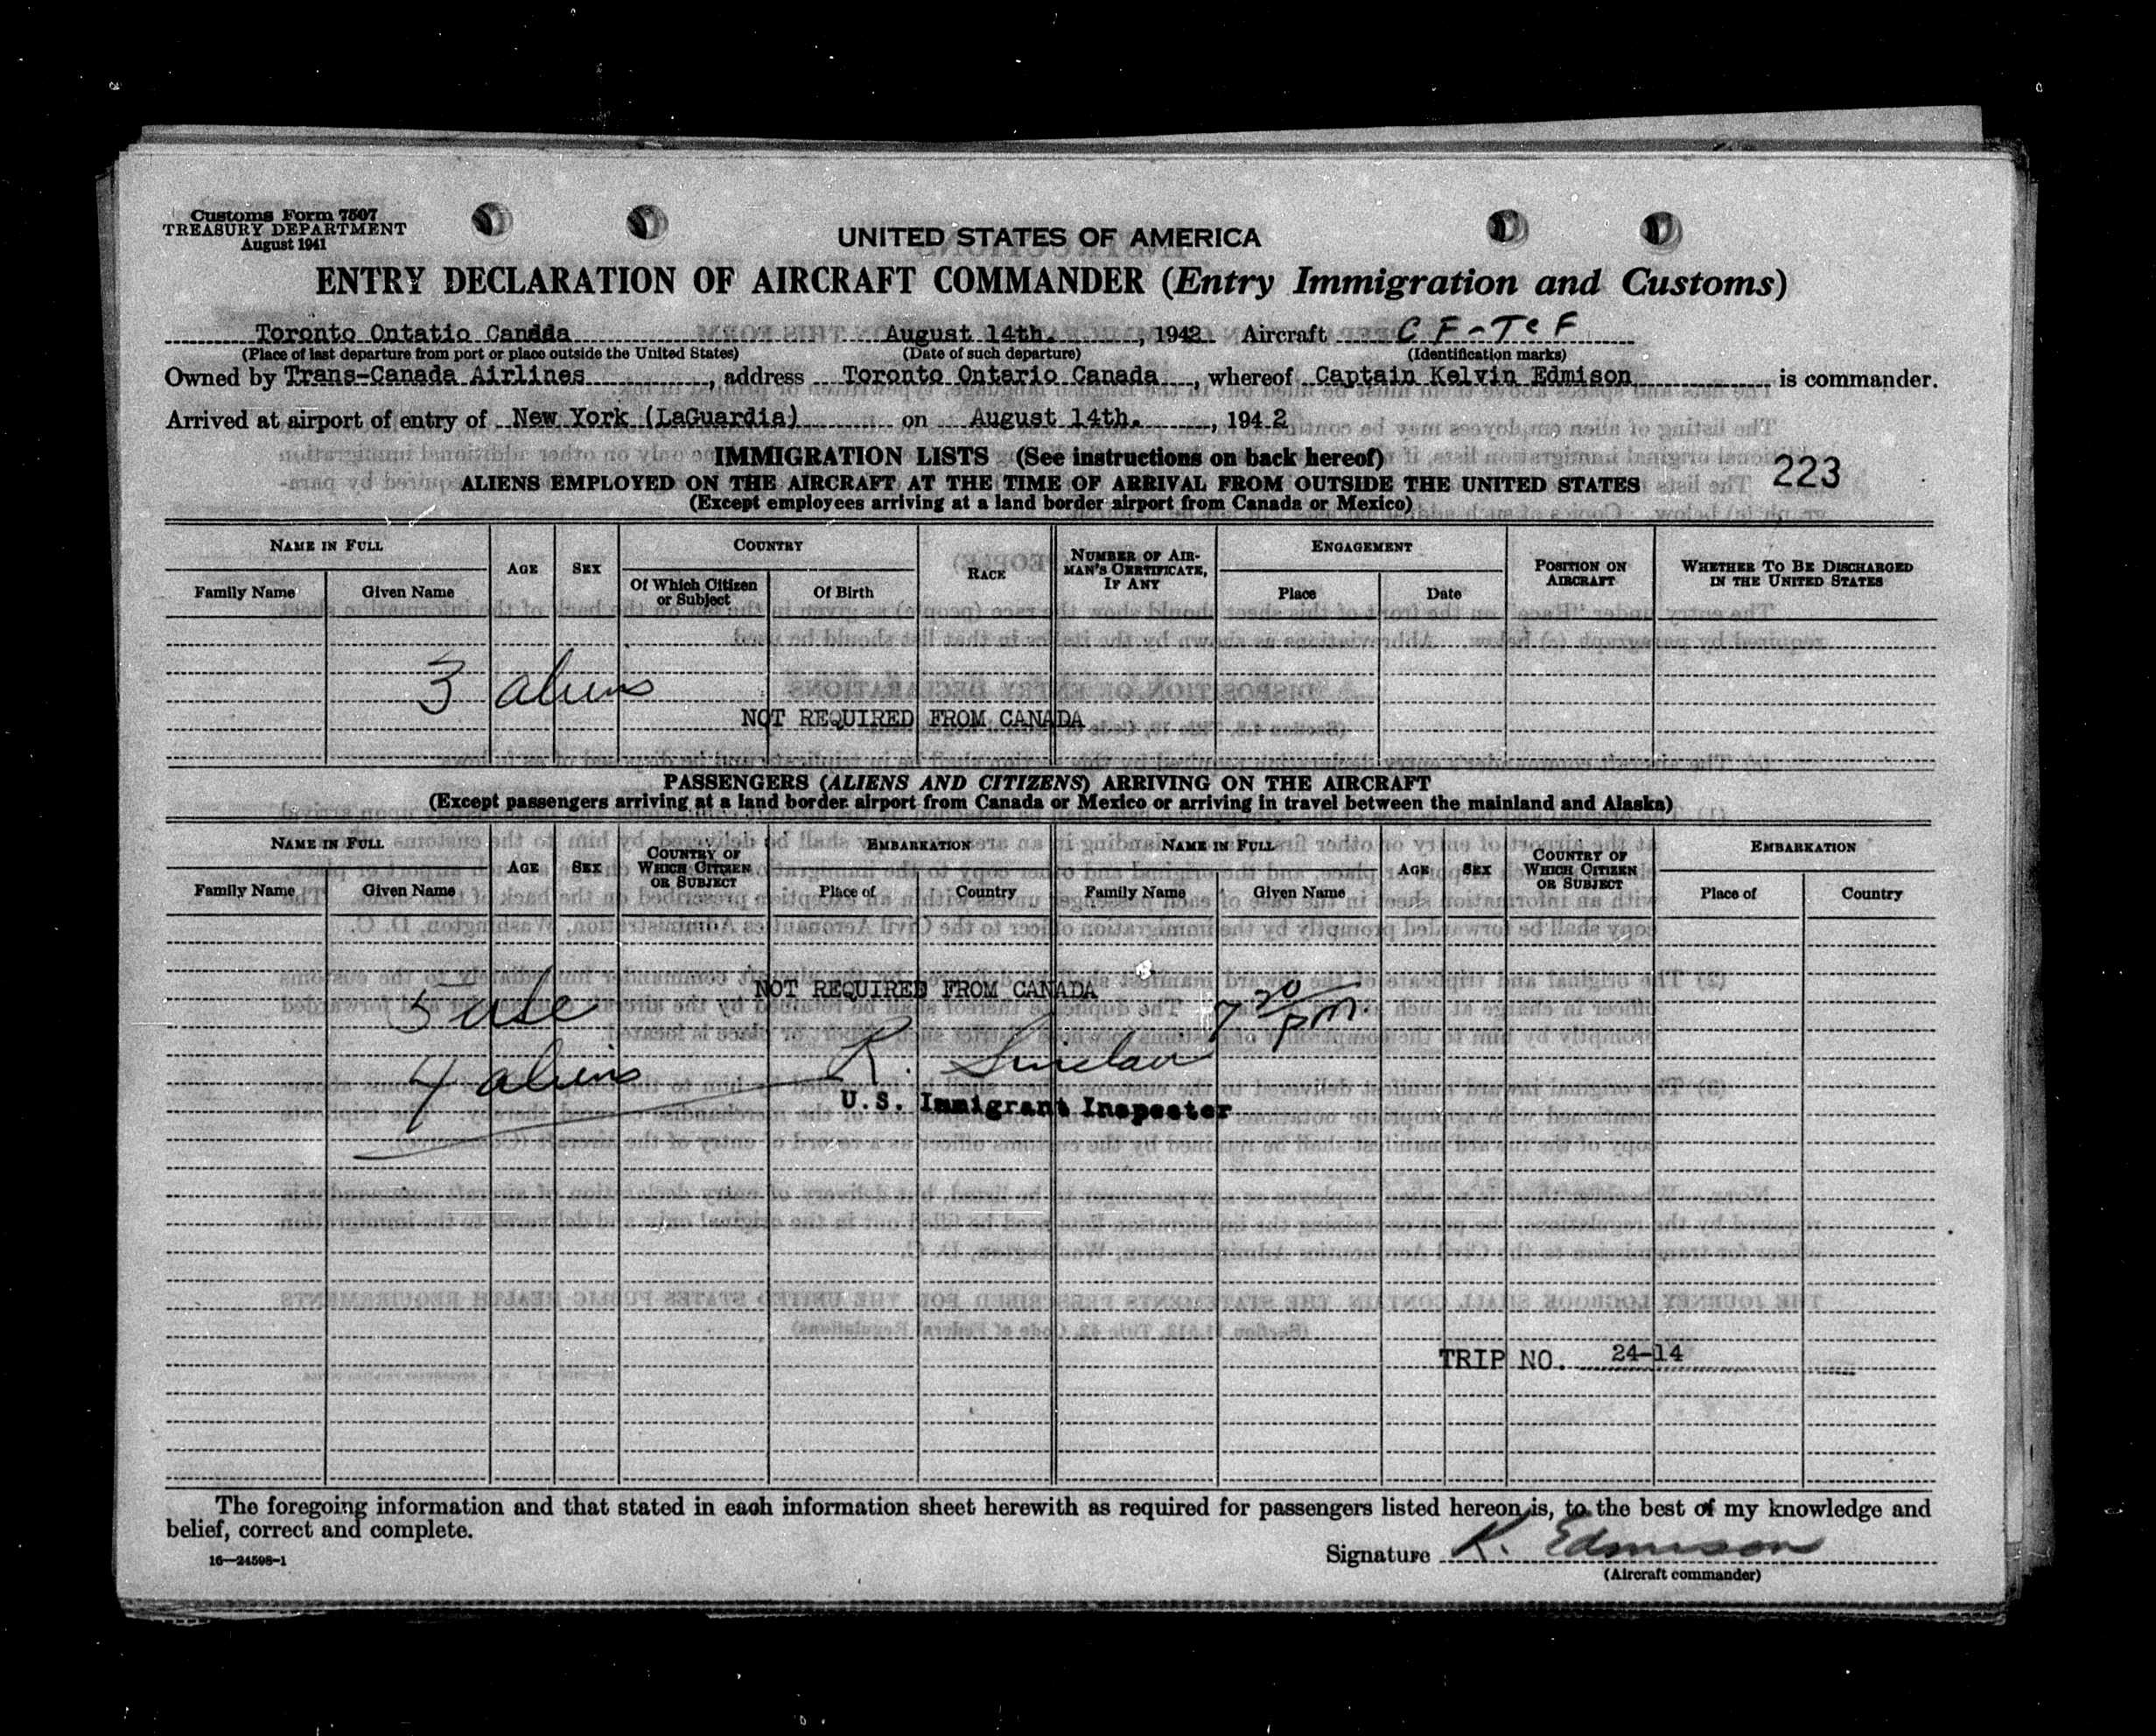 Customs Form 7507
TREASURY DEPARTMENT
August 1941
UNITED STATES OF AMERICA
ENTRY DECLARATION OF AIRCRAFT COMMANDER (Entry Immigration and Customs)
Toronto Ontatio Canada August 14th. , 1942 Aircraft CF-TCF
(Place of last departure from port or place outside the United States) (Date of such departure) (Identification marks)
Owned by Trans-Canada Airlines , address Toronto Ontario Canada , whereof Captain Kelvin Edmison is commander.
Arrived at airport of entry of New York (LaGuardia) on August 14th. , 1942
IMMIGRATION LISTS (See instructions on back hereof)
223
ALIENS EMPLOYED ON THE AIRCRAFT AT THE TIME OF ARRIVAL FROM OUTSIDE THE UNITED STATES
(Except employees arriving at a land border airport from Canada or Mexico)
NAME IN FULL AGE SEX COUNTRY RACE NUMBER OF AIRMAN'S CERTIFICATE, IF ANY ENGAGEMENT POSITION ON AIRCRAFT WHETHER TO BE DISCHARGED IN THE UNITED STATES
Family Name Given Name Of Which Citizen or Subject Of Birth Place Date
3 aliens
NOT REQUIRED FROM CANADA
PASSENGERS (ALIENS AND CITIZENS) ARRIVING ON THE AIRCRAFT
(Except passengers arriving at a land border airport from Canada or Mexico or arriving in travel between the mainland and Alaska)
NAME IN FULL AGE SEX COUNTRY OF WHICH CITIZEN OR SUBJECT EMBARKATION NAME IN FULL AGE SEX COUNTRY OF WHICH CITIZEN OR SUBJECT EMBARKATION
Family Name Given Name Place of Country Family Name Given Name Place of Country
NOT REQUIRED FROM CANADA
5 usc 7 30 pm
4 aliens R. Sinclair
U.S. Immigrant Inspector
TRIP NO. 24-14
The foregoing information and that stated in each information sheet herewith as required for passengers listed hereon is, to the best of my knowledge and
belief, correct and complete.
16—24598-1
Signature K. Edmison
(Aircraft commander)